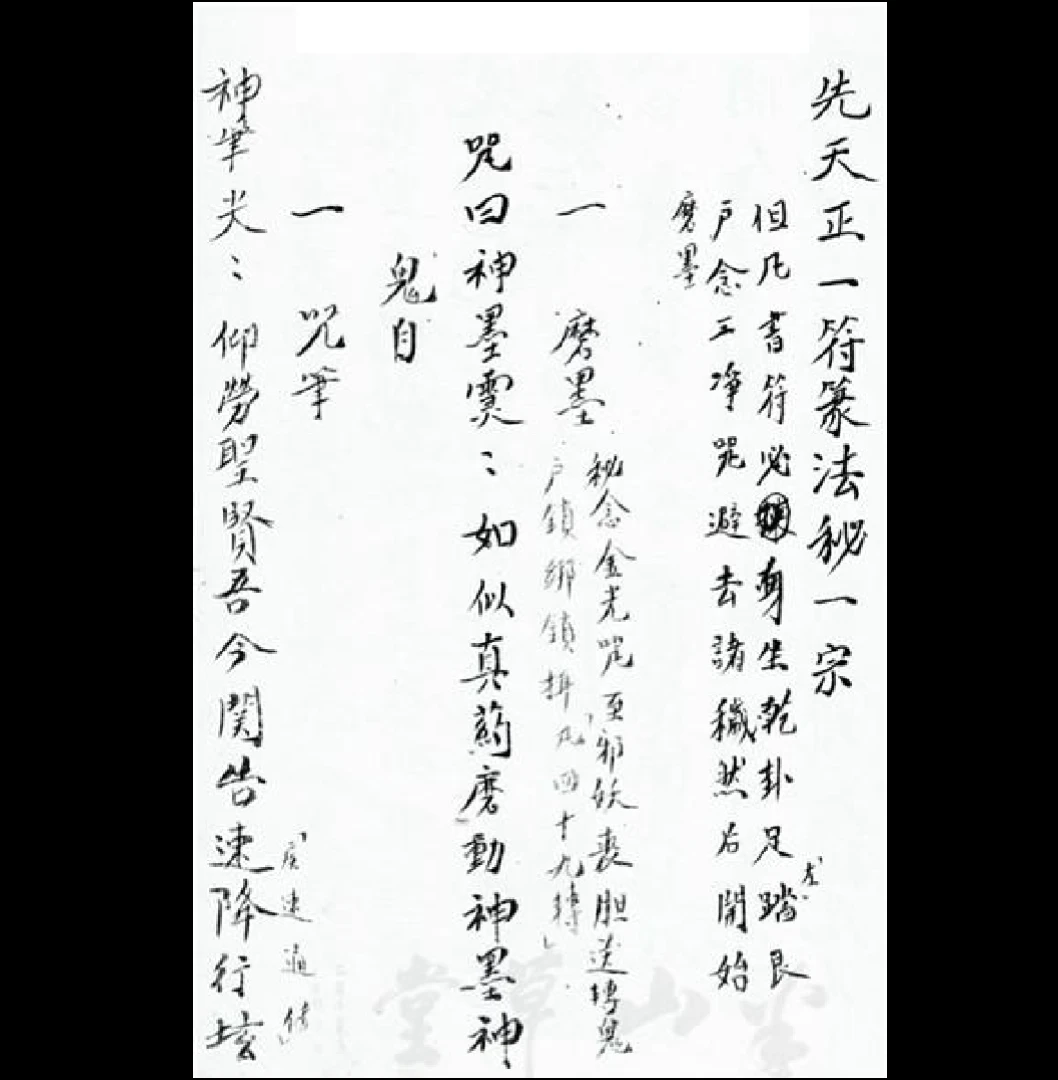 先天正一符篆法秘一宗
但凡書符必身坐乾卦足踏艮
左
戶念三净咒避去諸穢然后開始
磨墨
一 磨墨
秘念金光咒至邪妖喪胆送轉鬼
戶鎖鄉鎖拜凡四十九轉
咒曰神墨灵:如似真药磨動神墨神
鬼自
一 咒筆
神筆尖:仰勞聖賢吾今関告速降行坛
速
半山草堂